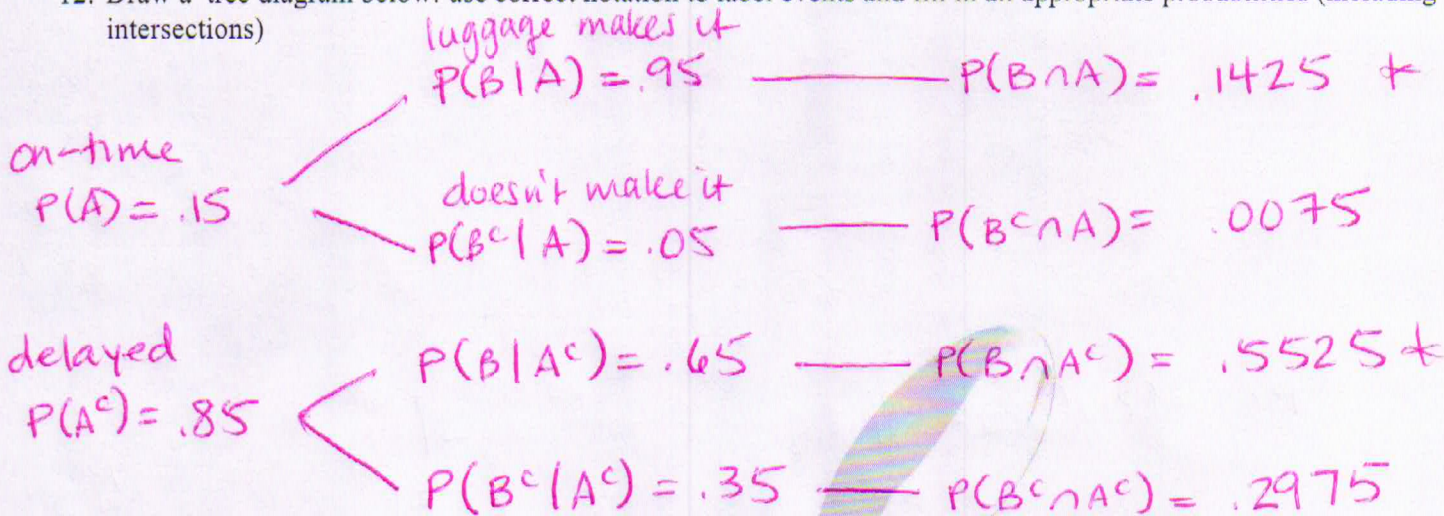 intersections)
luggage makes it
P(B|A) = .95 P(B∩A) = .1425 *
on-time
P(A) = .15
doesn't make it
P(Bᶜ|A) = .05 P(Bᶜ∩A) = .0075
delayed
P(Aᶜ) = .85
P(B|Aᶜ) = .65 P(B∩Aᶜ) = .5525 *
P(Bᶜ|Aᶜ) = .35 P(Bᶜ∩Aᶜ) = .2975